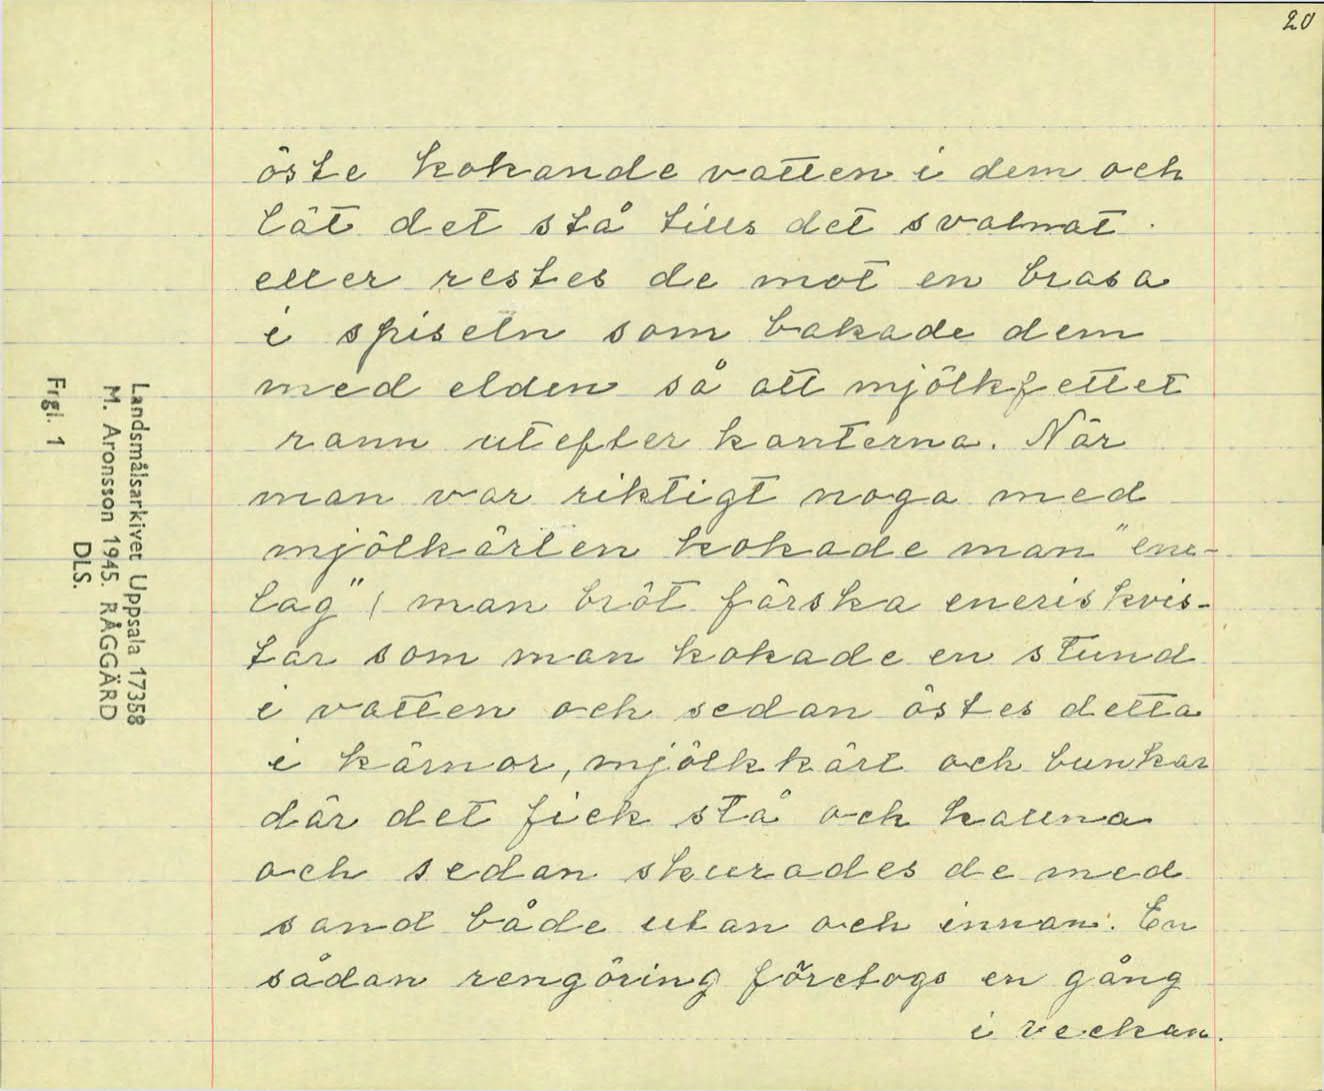 20
öste kokande vatten i dem och
lät det stå tills det svalnat.
eller restes de mot en brasa
i spiseln som bakade dem
med elden så att mjölkfettet
rann utefter kanterna. När
man var riktigt noga med
mjölkärlen kokade man "ene-
lag" ( man bröt färska eneriskvis-
tar som man kokade en stund
i vatten och sedan östes detta
i kärnor, mjölkkärl och bunkar
där det fick stå och kallna
och sedan skurades de med
sand både utan och innan. En
sådan rengöring företogs en gång
i veckan.
Landsmålsarkivet Uppsala 17358
M. Aronsson 1945. RÅGGÄRD
DLS.
Frgl. 1